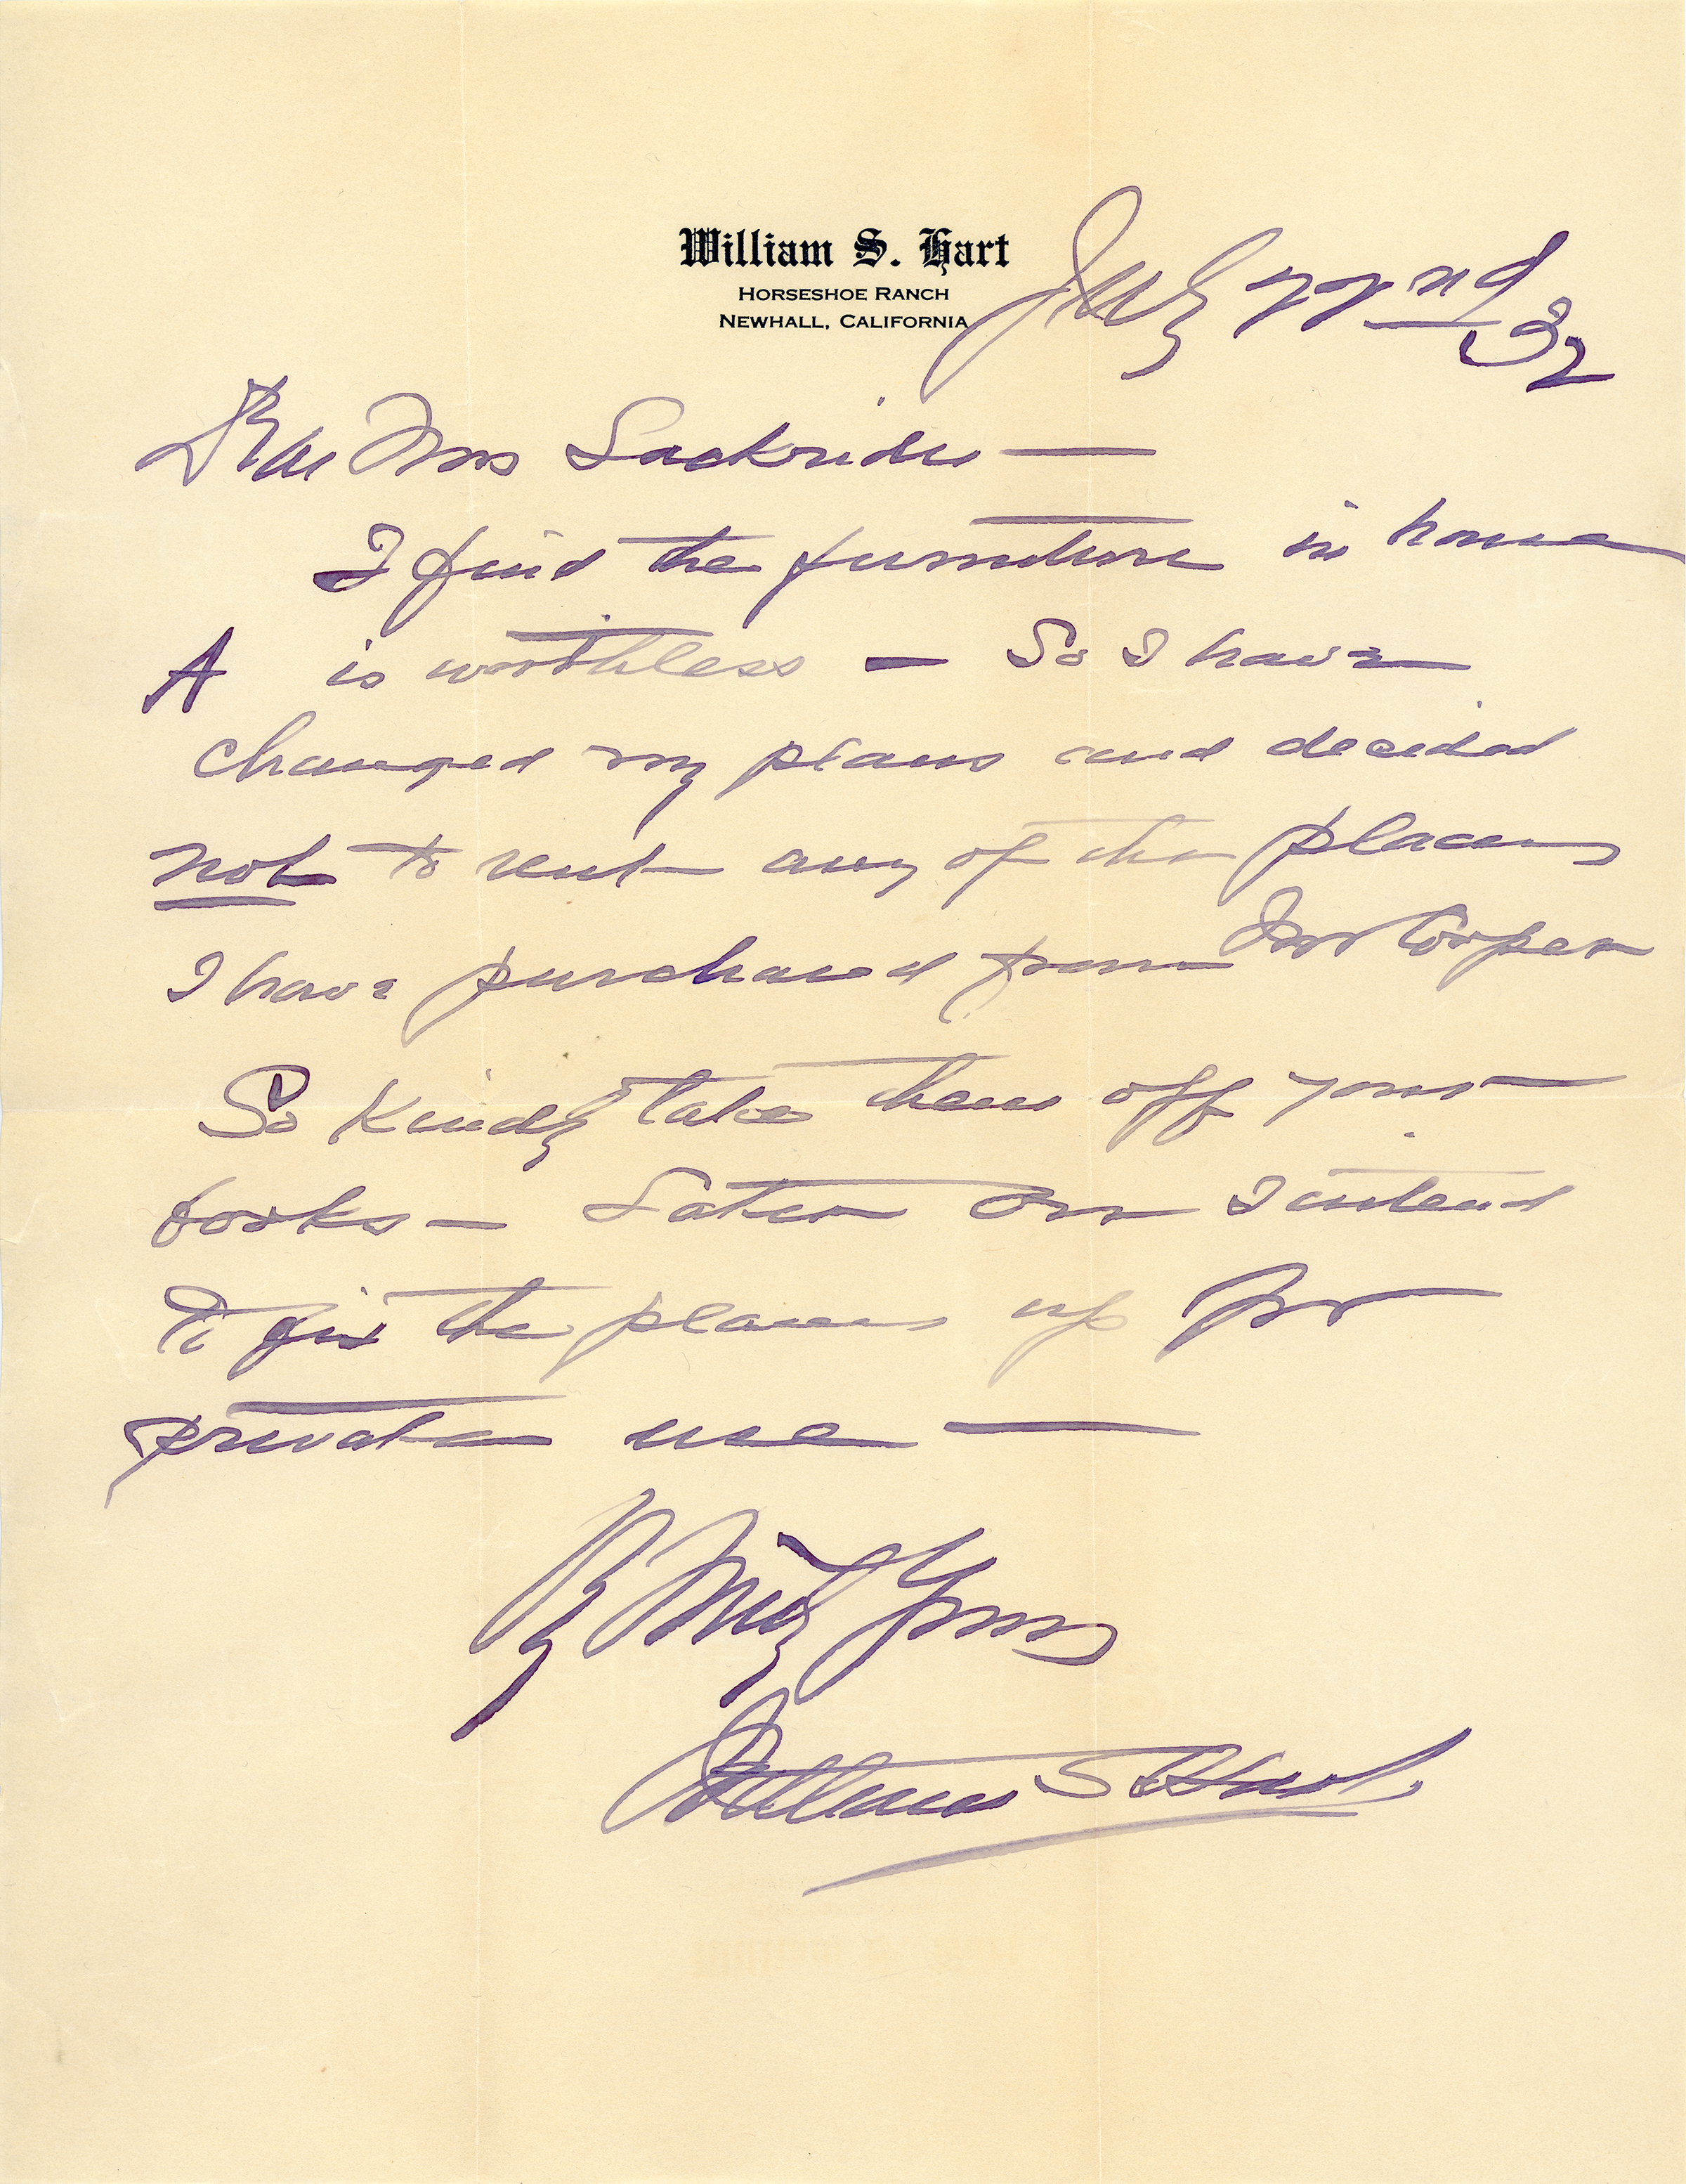 William S. Hart
HORSESHOE RANCH
NEWHALL, CALIFORNIA
July 22nd 32
Dear Mrs Lackrider —
I find the furniture in house
A is worthless — So I have
changed my plans and decided
not to rent any of the places
I have purchased from Mr Cooper
So kindly take them off your
books — Later on I intend
to fix the places up for
private use —
Truly Yours
William S Hart